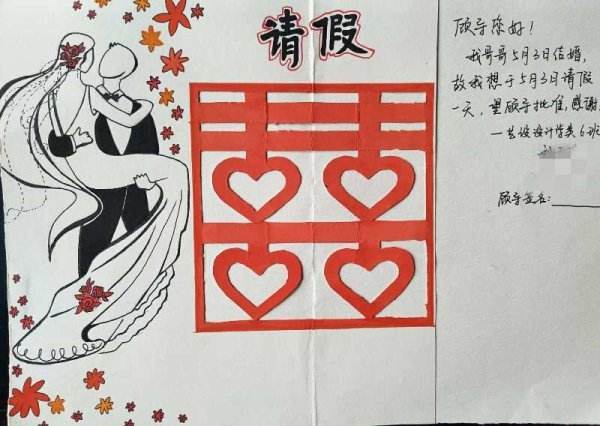 请假
顾导您好！
我哥哥5月3日结婚，
故我想于5月3日请假
一天，望顾导批准，感谢。
—艺设设计学类6班
顾导签名：